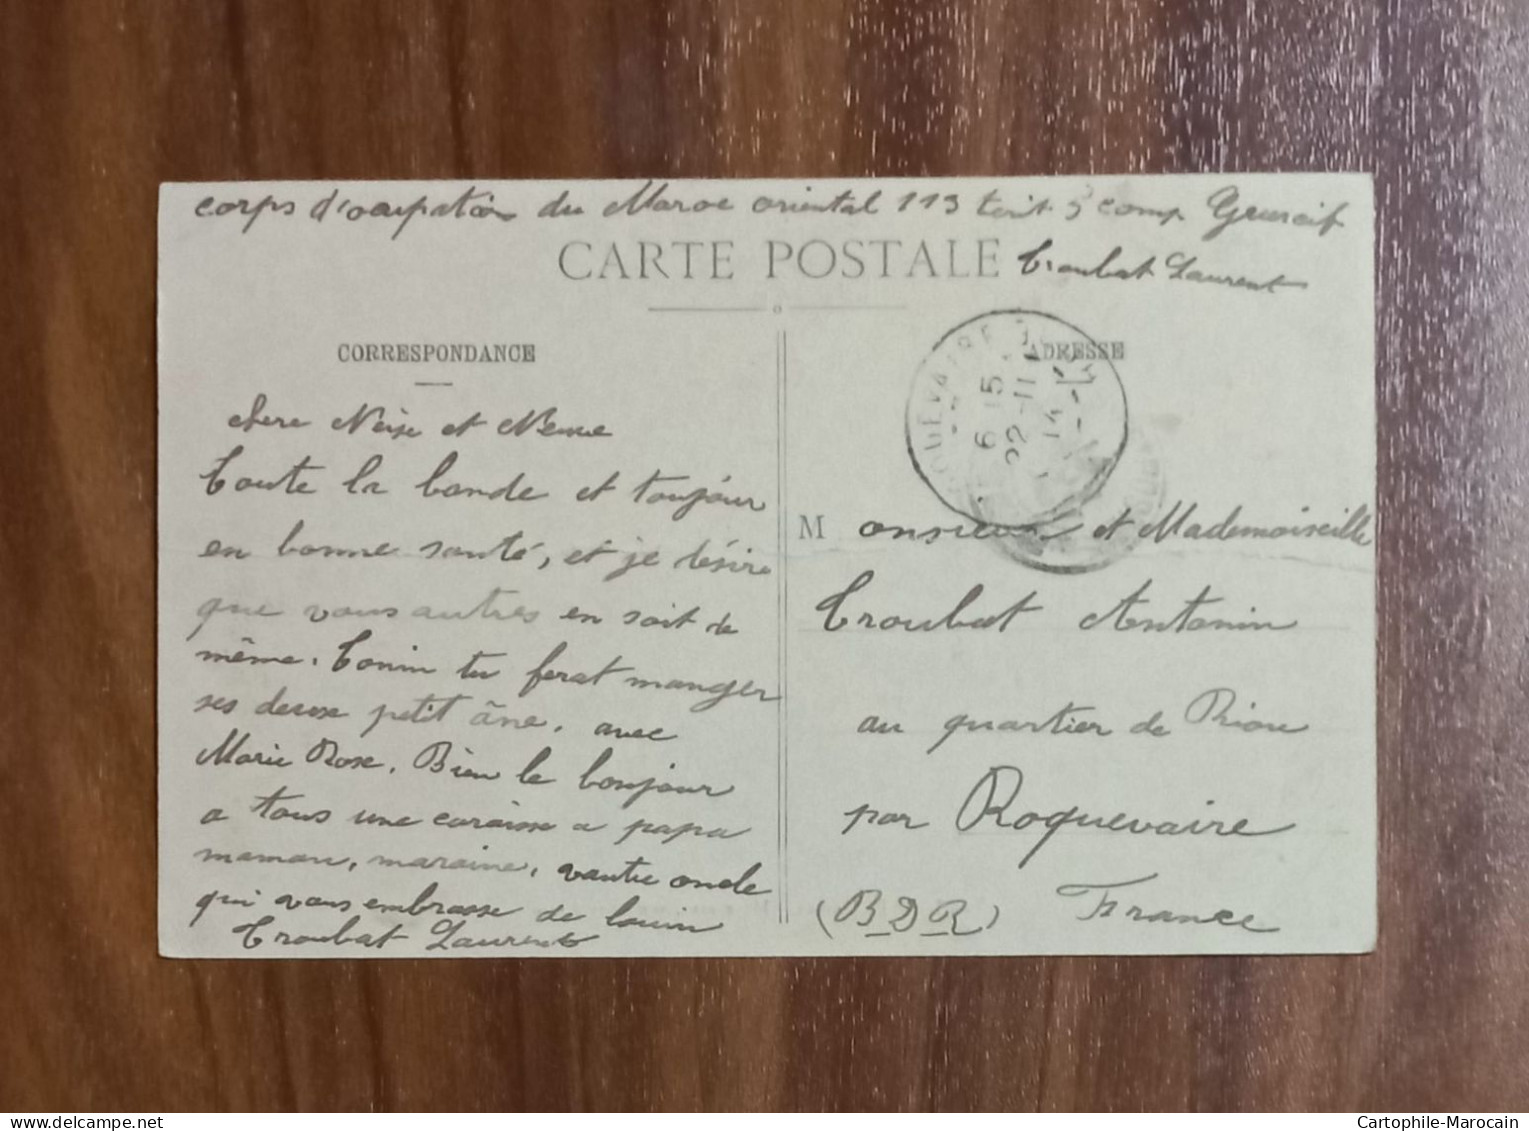 corps d'ocupation du Maroc oriental 113 terit 5 comp Guercif
CARTE POSTALE
Troubat Laurent
CORRESPONDANCE
ADRESSE
chere Neise et Neveue
Toute la bande et toujour
en bonne santé, et je désire
que vous autres en soit de
même. Tonin tu ferat manger
ses deuse petit âne, avec
Marie Rose. Bien le bonjour
a tous une caraisse a papa
maman, maraine, vautre oncle
qui vous embrasse de louin
Troubat Laurent
ROQUEVAIRE
6 15
22-11
14
Monsieur et Mademoiseille
Troubat Antonin
au quartier de Riou
par Roquevaire
(B.D.R) France
www.delcampe.net
Cartophile-Marocain